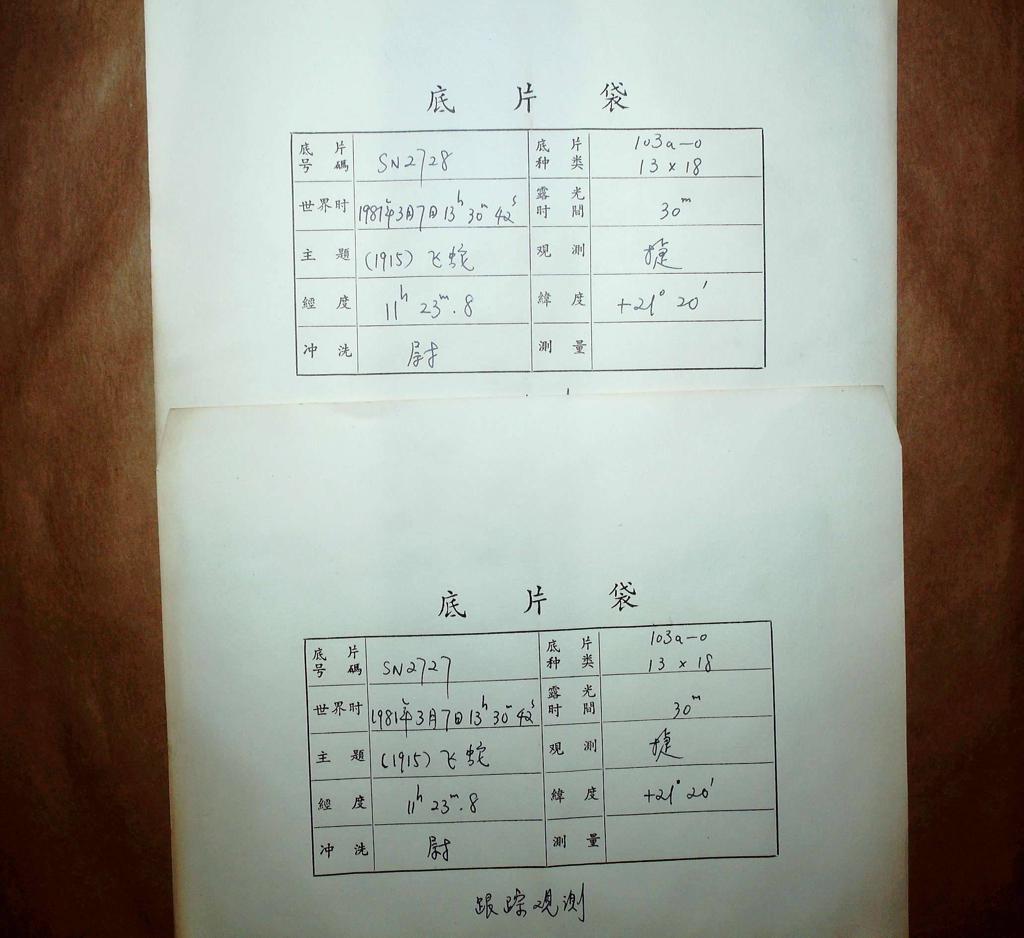 底片袋
底片号碼 SN2728 底片种类 103a-o 13×18
世界时 1981年3月7日13ʰ30ᵐ42ˢ 露光时間 30ᵐ
主題 (1915) 飞蛇 观測 捷
經度 11ʰ 23ᵐ.8 緯度 +21° 20′
冲洗 尉 測量
底片袋
底片号碼 SN2727 底片种类 103a-o 13×18
世界时 1981年3月7日13ʰ30ᵐ42ˢ 露光时間 30ᵐ
主題 (1915) 飞蛇 观測 捷
經度 11ʰ 23ᵐ.8 緯度 +21° 20′
冲洗 尉 測量
跟踪观测